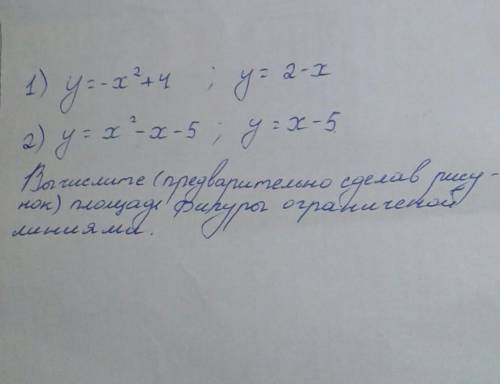 1) y = -x² + 4 ; y = 2 - x
2) y = x² - x - 5 ; y = x - 5
Вычислите (предварительно сделав рису-
нок) площадь фигуры ограниченой
линиями.